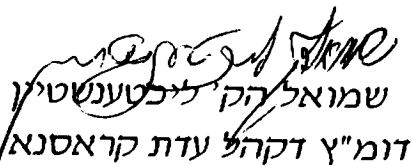 שמואל הק' ליכטענשטיין
דומ"ץ דקהל עדת קראסנא